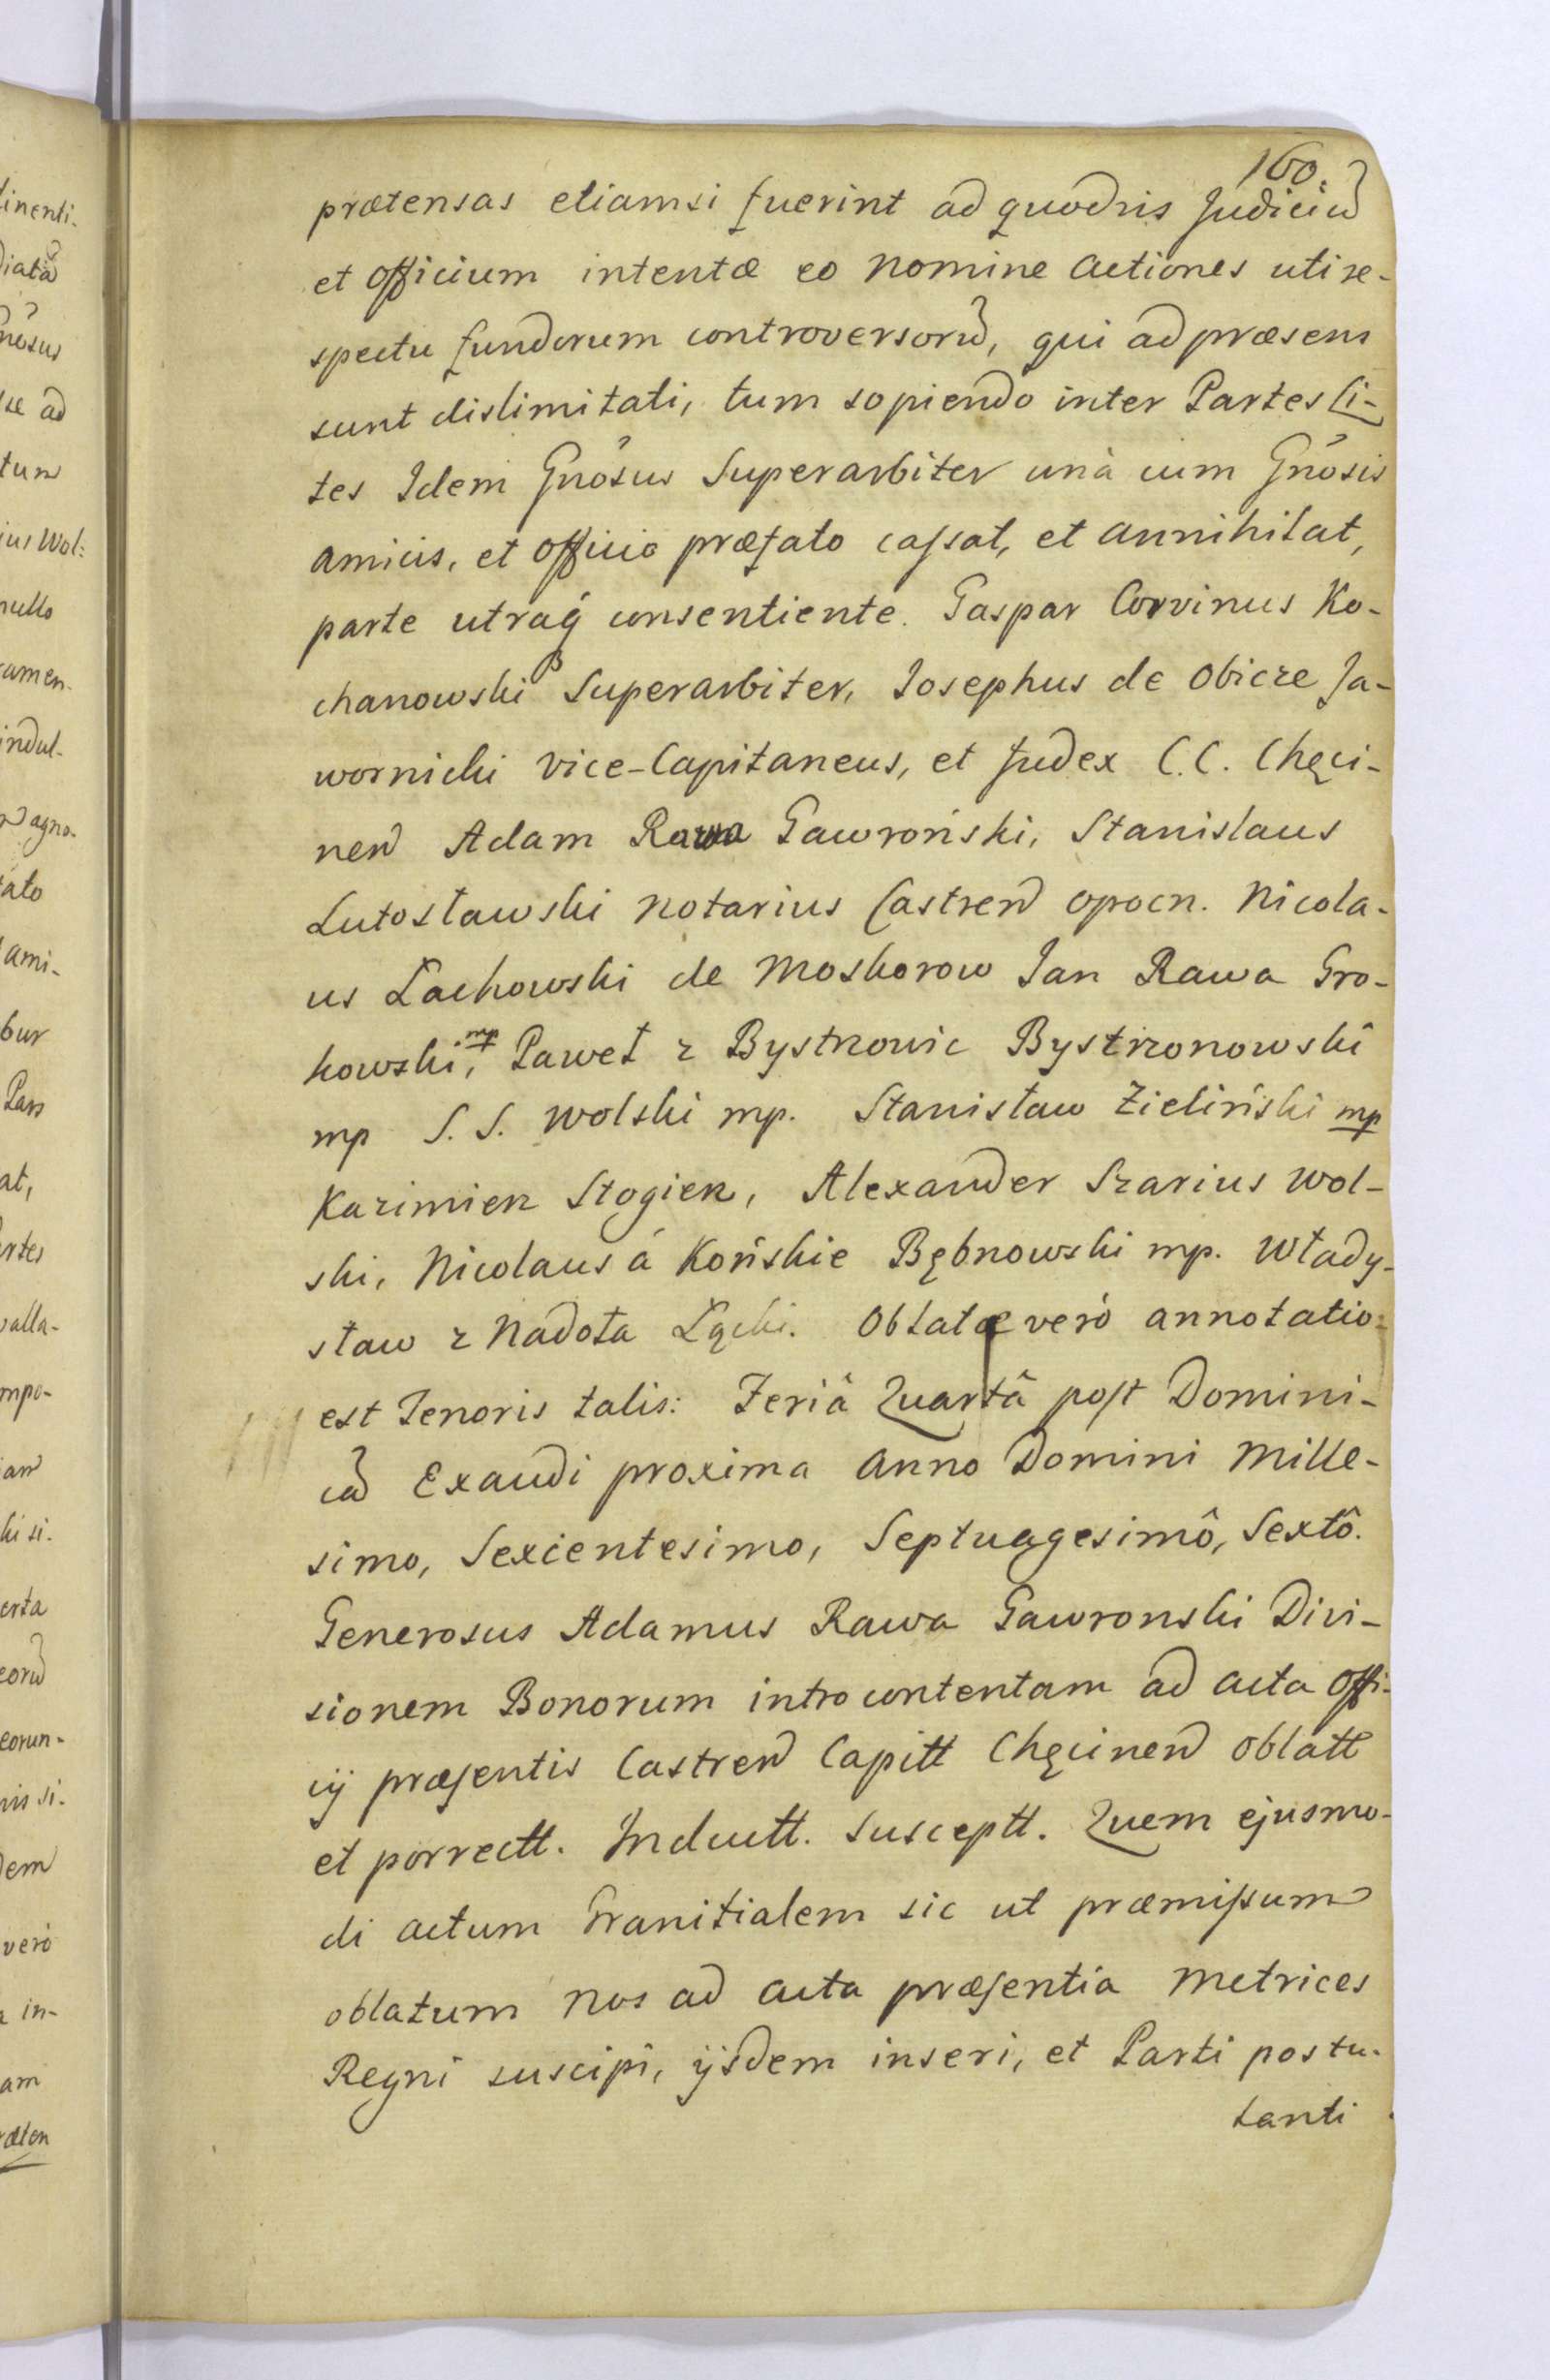 160.
prætensas etiamsi fuerint ad quodvis Judiciu͠
et officium intentæ eo nomine actiones uti re-
spectu fundorum controversoru͠, qui ad præsens
sunt dislimitati, tum sopiendo inter Partes Li-
tes Idem Gnõsus Superarbiter unà cum Gnõsis
amicis, et officio præfato cassat, et annihilat,
parte utraq́ consentiente. Gaspar Corvinus Ko-
chanowski Superarbiter, Josephus de Obicze Ja-
wornicki Vice-Capitaneus, et Judex C.C. Chęci-
nen͠ Adam Rawa Gawroński, Stanislaus
Lutosławski Notarius Castren͠ Opocn. Nicola-
us Lachowski de Moskorow Jan Rawa Gro-
kowski, mp Paweł z Bystrzonic Bystrzonowski
mp S. S. Wolski mp. Stanisław Zieliński mp
Kazimierz Stogierz, Alexander Szarius Wol-
ski, Nicolaus á Końskie Bębnowski mp. Włady-
sław z Nadoła Łącki. Oblatæ verò annotatio
est Tenoris talis: Feriâ Quartâ post Domini-
ca͠ Exaudi proxima Anno Domini Mille-
simo, Sexcentesimo, Septuagesimô, Sextô.
Generosus Adamus Rawa Gawronski Divi-
sionem Bonorum introcontentam ad acta Offi-
cij præsentis Castren͠ Capitt Chęcinen͠ oblatt
et porrectt. Inductt. Susceptt. Quem ejusmo-
di actum Granitialem sic ut præmissum
oblatum Nos ad acta præsentia Metrices
Regni suscipi, ijsdem inseri, et Parti postu-
lanti
tinenti-
diata͠
Gnõsus
se ad
tum
ius Wol:
nullo
ramen-
indul-
agno-
tato
ami-
bur
Pars
at,
artes
valla-
mpo-
hi si-
erta
eoru͠
eorun-
nis si-
dem
verò
in-
am